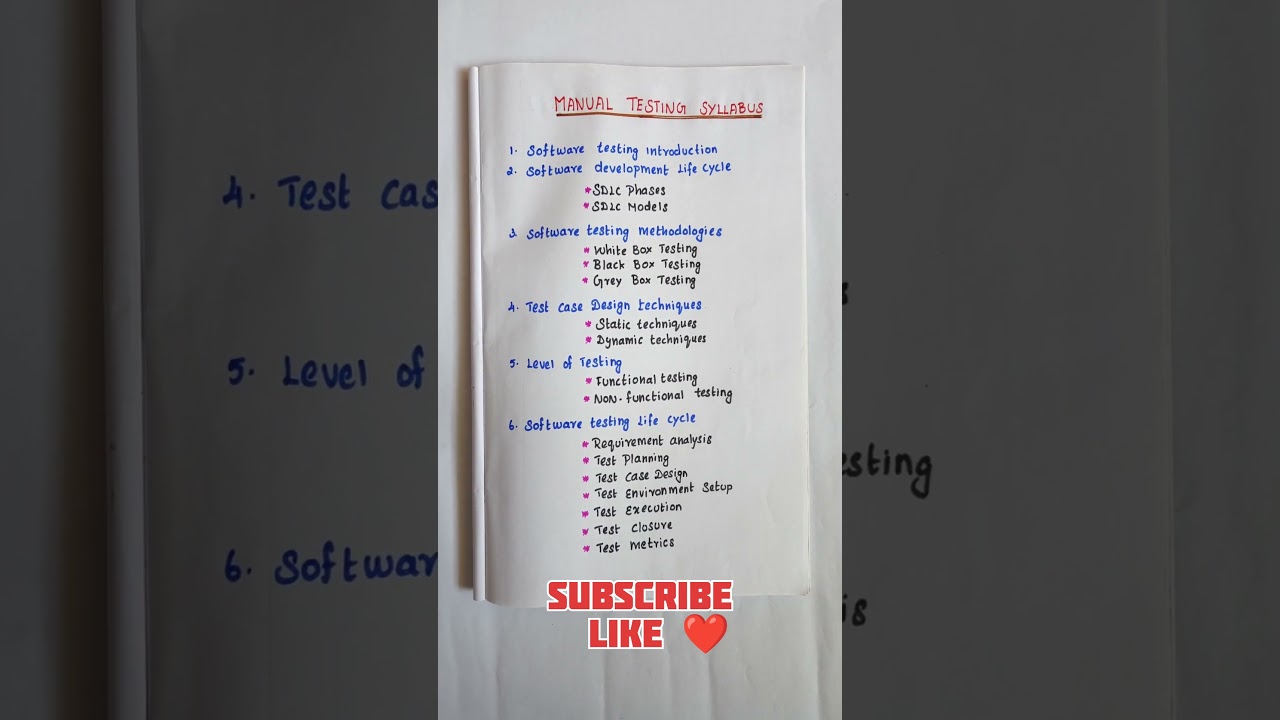 MANUAL TESTING SYLLABUS
1. Software testing Introduction
2. Software development Life Cycle
* SDLC Phases
* SDLC Models
3. Software testing methodologies
* White Box Testing
* Black Box Testing
* Grey Box Testing
4. Test case Design techniques
* Static techniques
* Dynamic techniques
5. Level of Testing
* Functional testing
* Non-functional testing
6. Software testing Life cycle
* Requirement analysis
* Test Planning
* Test Case Design
* Test Environment Setup
* Test Execution
* Test Closure
* Test metrics
SUBSCRIBE
LIKE ❤️
4. Test cas
5. Level of
esting
6. Softwar
is